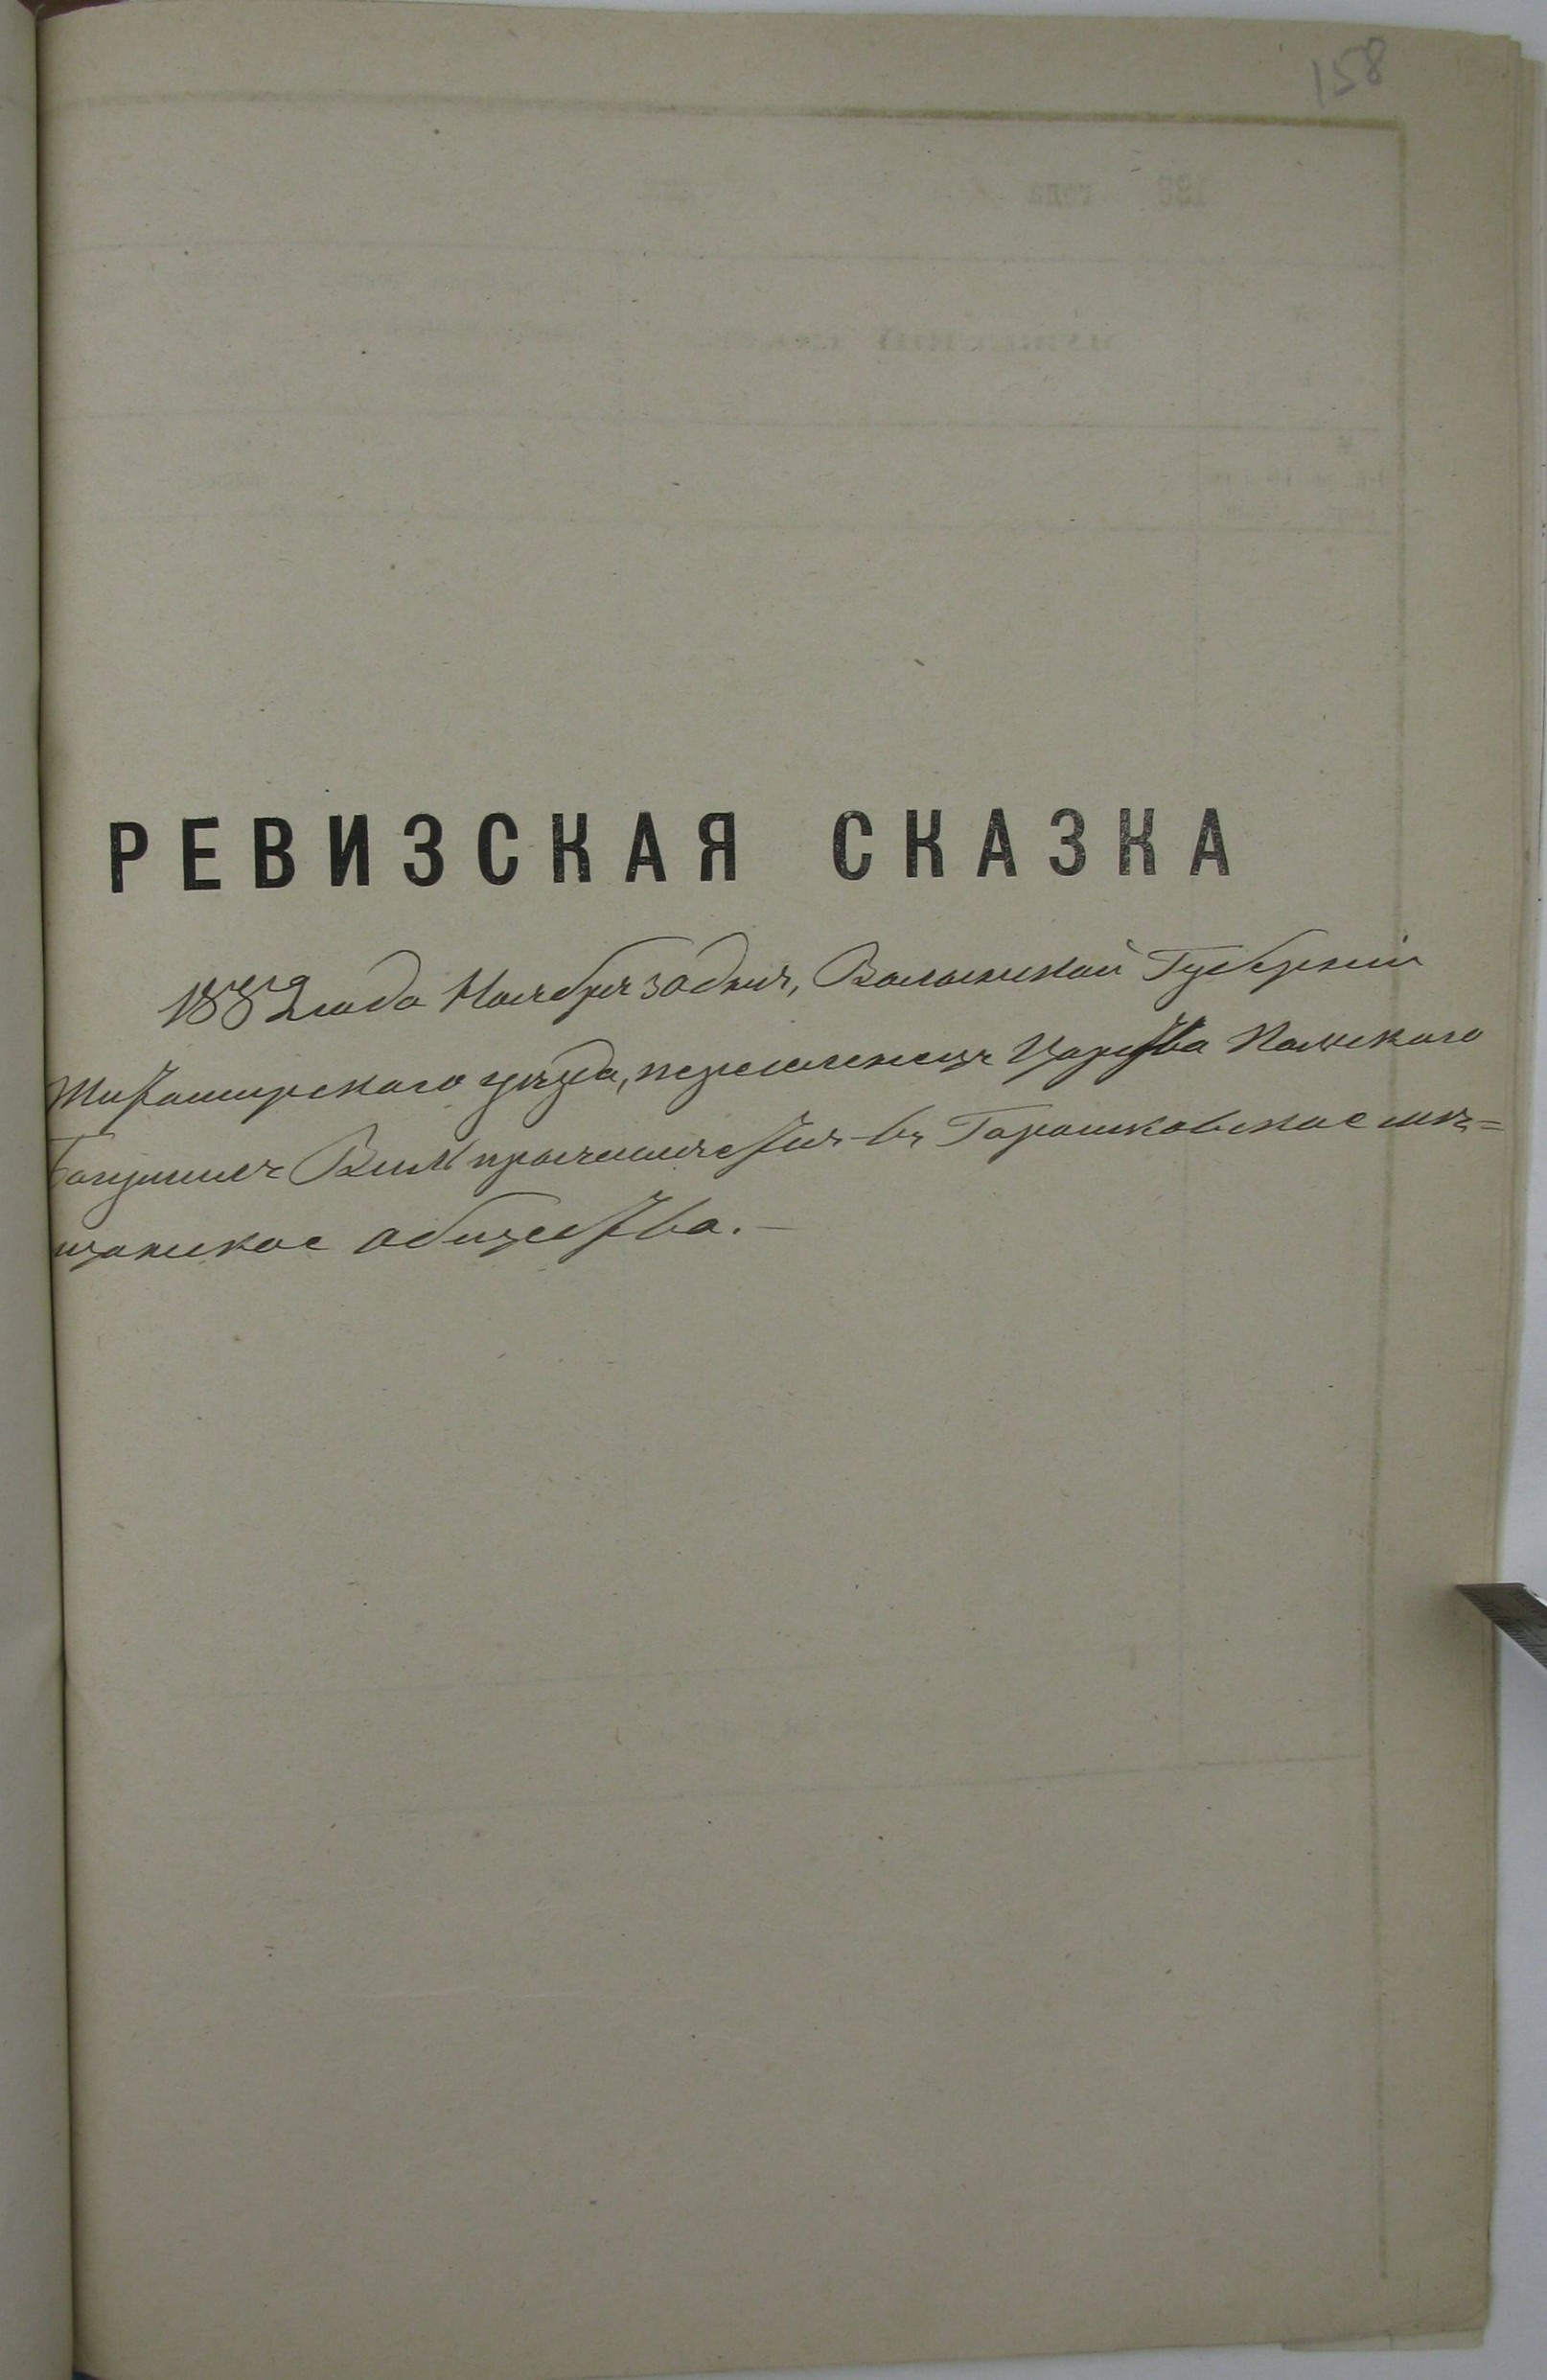 158
РЕВИЗСКАЯ СКАЗКА
1882 года Ноября 30 дня, Волынской Губерніи
Житомирского уѣзда, переселенецъ Царства Польского
Вильг причисляется въ Горошковское мѣ=
щанское общество.—